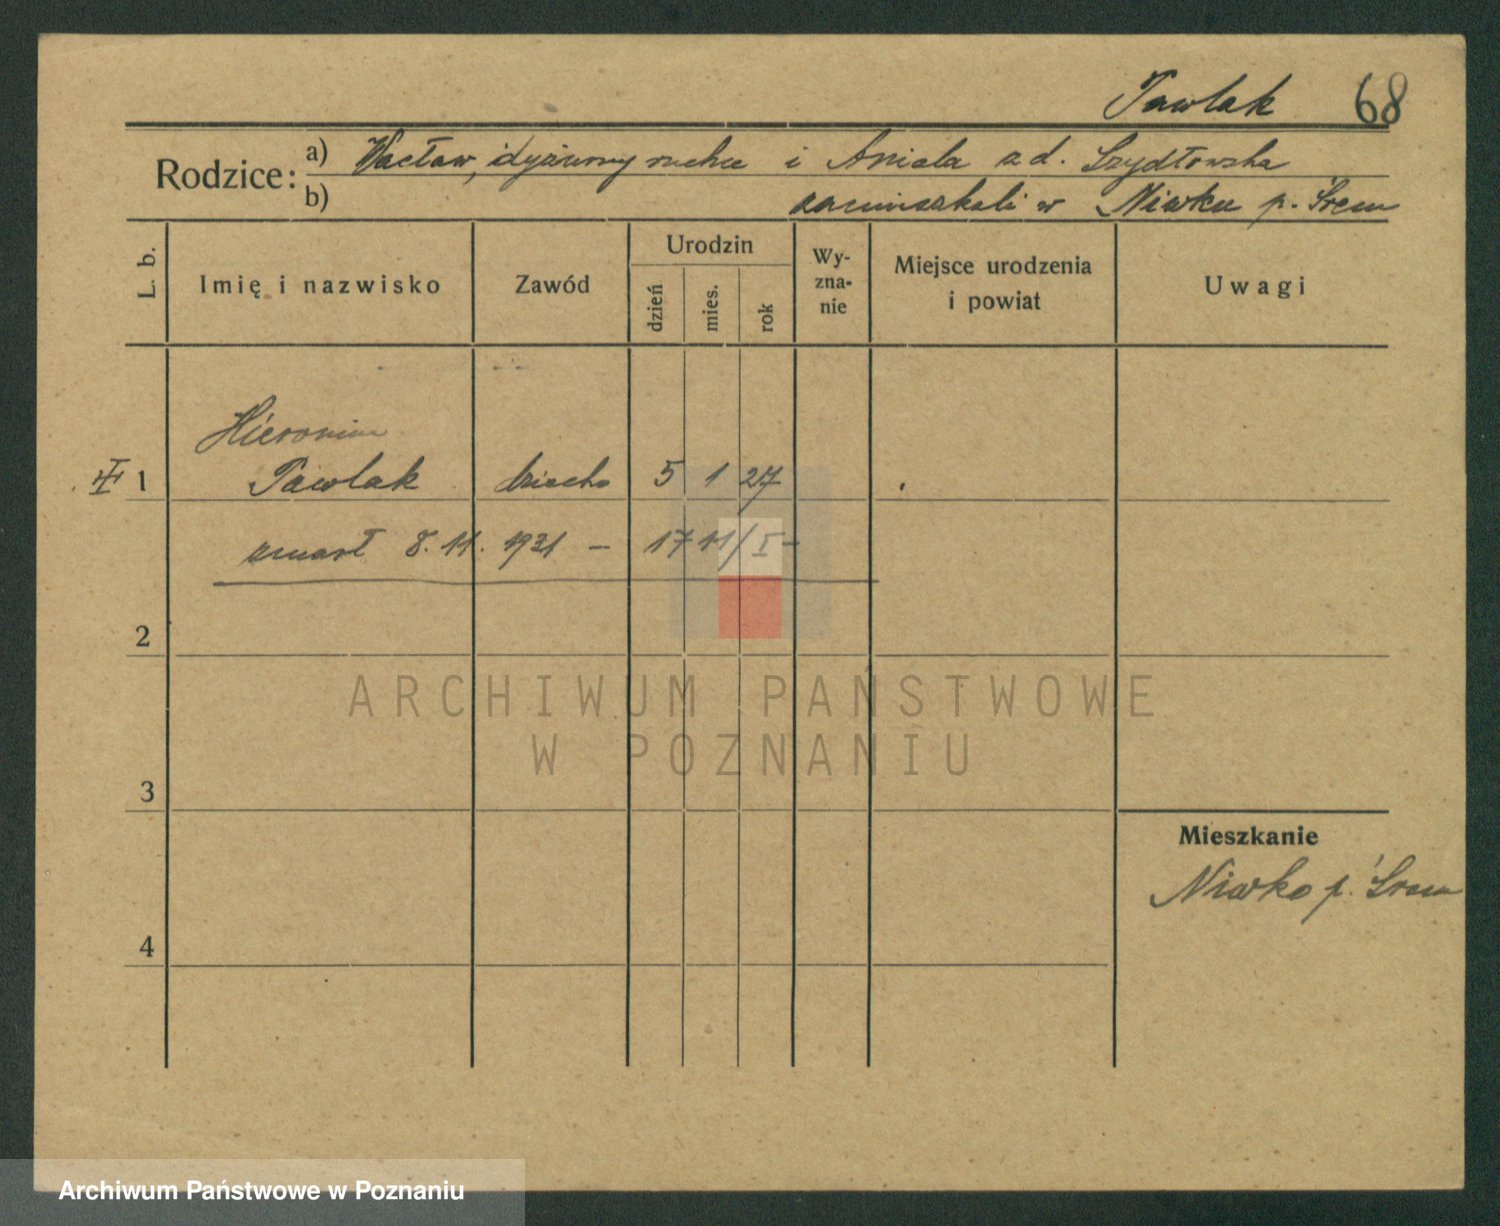 Pawlak 68
Rodzice: a) Wacław, dyżurny ruchu i Aniela z d. Szydłowska
b) zamieszkali w Niwku p. Śrem
L. b. Imię i nazwisko Zawód Urodzin dzień mies. rok Wy-zna-nie Miejsce urodzenia i powiat Uwagi
Hieronim
1 Pawlak dziecko 5 1 27
zmarł 8. 11. 1931 – 17 11/I –
2
ARCHIWUM PAŃSTWOWE
W POZNANIU
3
Mieszkanie
Niwka p. Śrem
4
Archiwum Państwowe w Poznaniu